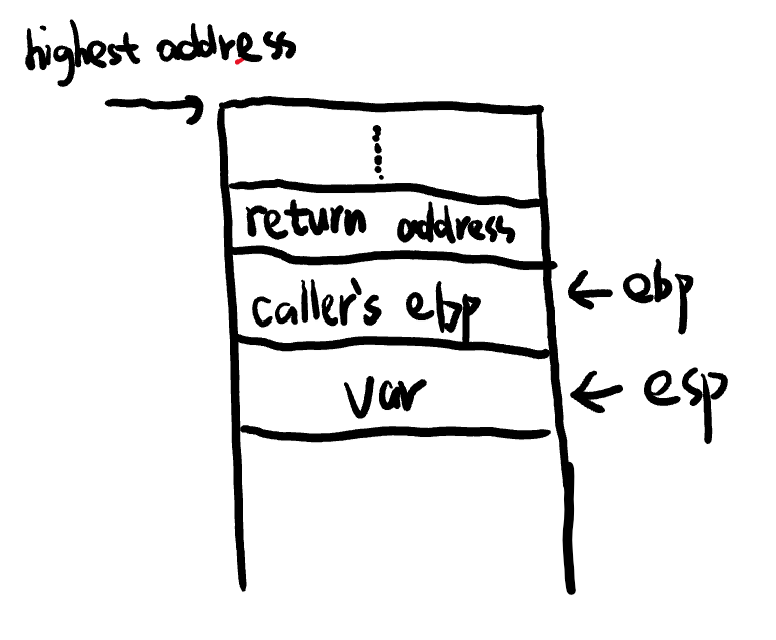 highest address
return address
caller's ebp
← ebp
var
← esp